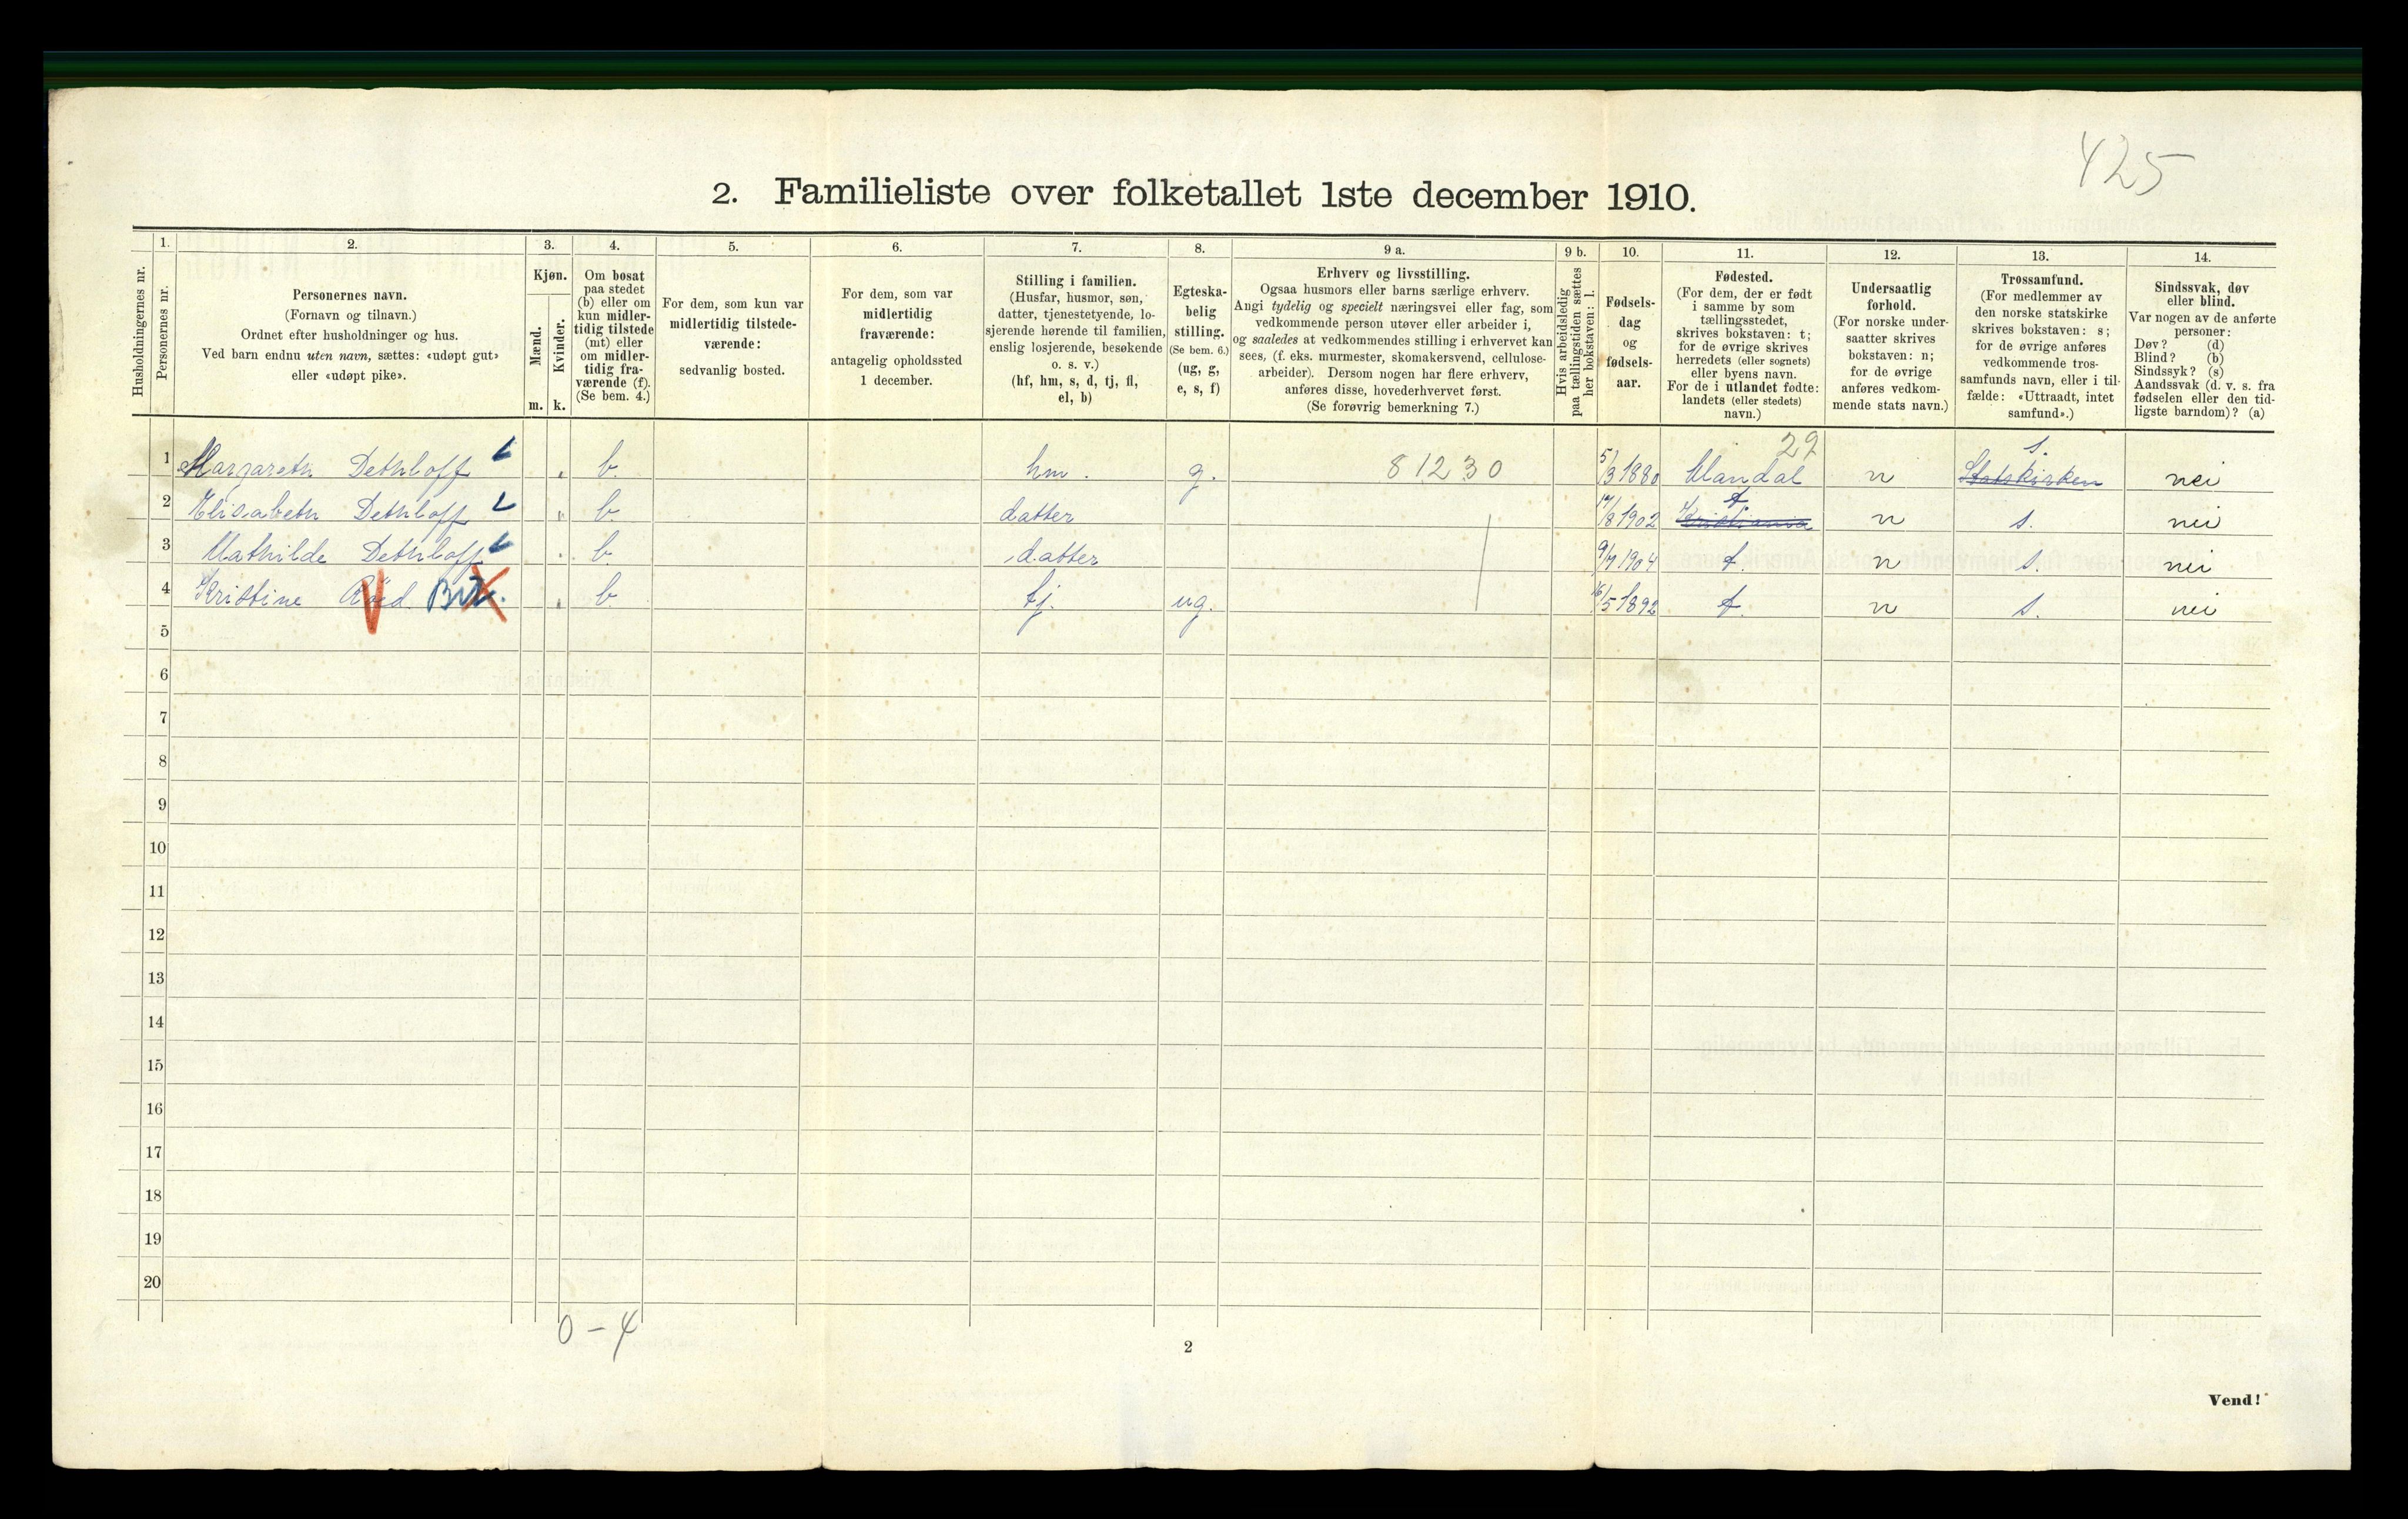 425
2. Familieliste over folketallet 1ste december 1910.
Husholdningernes nr.
1.
Personernes nr.
2.
Personernes navn.
(Fornavn og tilnavn.)
Ordnet efter husholdninger og hus.
Ved barn endnu uten navn, sættes: «udøpt gut»
eller «udøpt pike».
3.
Kjøn.
Mænd.
Kvinder.
m. k.
4.
Om bosat
paa stedet
(b) eller om
kun midler-
tidig tilstede
(mt) eller
om midler-
tidig fra-
værende (f).
(Se bem. 4.)
5.
For dem, som kun var
midlertidig tilstede-
værende:
sedvanlig bosted.
6.
For dem, som var
midlertidig
fraværende:
antagelig opholdssted
1 december.
7.
Stilling i familien.
(Husfar, husmor, søn,
datter, tjenestetyende, lo-
sjerende hørende til familien,
enslig losjerende, besøkende
o. s. v.)
(hf, hm, s, d, tj, fl,
el, b)
8.
Egteska-
belig
stilling.
(Se bem. 6.)
(ug, g,
e, s, f)
9 a.
Erhverv og livsstilling.
Ogsaa husmors eller barns særlige erhverv.
Angi tydelig og specielt næringsvei eller fag, som
vedkommende person utøver eller arbeider i,
og saaledes at vedkommendes stilling i erhvervet kan
sees, (f. eks. murmester, skomakersvend, cellulose-
arbeider). Dersom nogen har flere erhverv,
anføres disse, hovederhvervet først.
(Se forøvrig bemerkning 7.)
9 b.
Hvis arbeidsledig
paa tællingstiden sættes
her bokstaven: l.
10.
Fødsels-
dag
og
fødsels-
aar.
11.
Fødested.
(For dem, der er født
i samme by som
tællingsstedet,
skrives bokstaven: t;
for de øvrige skrives
herredets (eller sognets)
eller byens navn.
For de i utlandet fødte:
landets (eller stedets)
navn.)
12.
Undersaatlig
forhold.
(For norske under-
saatter skrives
bokstaven: n;
for de øvrige
anføres vedkom-
mende stats navn.)
13.
Trossamfund.
(For medlemmer av
den norske statskirke
skrives bokstaven: s;
for de øvrige anføres
vedkommende tros-
samfunds navn, eller i til-
fælde: «Uttraadt, intet
samfund».)
14.
Sindssvak, døv
eller blind.
Var nogen av de anførte
personer:
Døv? (d)
Blind? (b)
Sindssyk? (s)
Aandssvak (d. v. s. fra
fødselen eller den tid-
ligste barndom)? (a)
29 s.
1 Margareth Dethloff b. hm. g. 81230 5/3 1880 Mandal n Statskirken nei
t
2 Elisabeth Dethloff b. datter 17/8 1902 Kristiania n s. nei
3 Mathilde Dethloff b. datter 9/7 1904 t. n s. nei
4 Kristine Röed b. tj. ug. 16/5 1892 t. n s. nei
5
6
7
8
9
10
11
12
13
14
15
16
17
18
19
20
0 - 4
2
Vend!